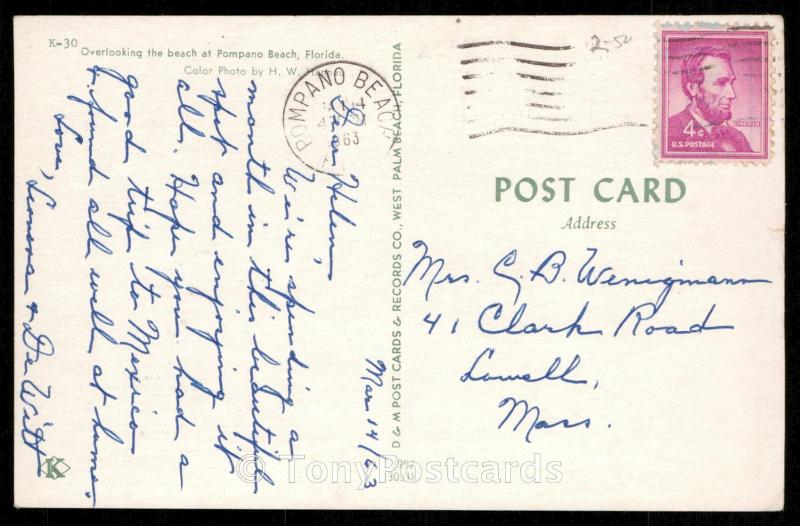 K-30
Overlooking the beach at Pompano Beach, Florida.
Color Photo by H. W.
POMPANO BEACH
14
63
2-50
4¢
LINCOLN
U.S. POSTAGE
Mar 14/63
Dear Helen,
We're spending a
month in this beautiful
spot and enjoying it
all. Hope you had a
good trip to Mexico
& found all well at home.
Love,
Lenora & DeWitt
D & M POST CARDS & RECORDS CO., WEST PALM BEACH, FLORIDA
POST CARD
Address
Mrs. C. B. Wenigmann
41 Clark Road
Lowell,
Mass.
K
© TonyPostcards